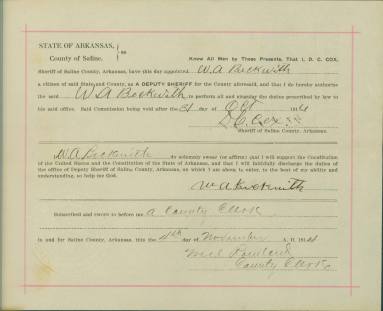 STATE OF ARKANSAS,
County of Saline. } ss
Know All Men by These Presents, That I, D. C. COX,
Sheriff of Saline County, Arkansas, have this day appointed W. A. Beckwith
a citizen of said State and County, as A DEPUTY SHERIFF for the County aforesaid, and that I do hereby authorize
the said W A Beckwith to perform all and singular the duties prescribed by law to
his said office. Said Commission being void after the 31 day of Oct 191
D. C. Cox
Sheriff of Saline County, Arkansas.
I, W A Beckwith do solemnly swear (or affirm) that I will support the Constitution
of the United States and the Constitution of the State of Arkansas, and that I will faithfully discharge the duties of
the office of Deputy Sheriff of Saline County, Arkansas, on which I am about to enter, to the best of my ability and
understanding, so help me God.
W A Beckwith
Subscribed and sworn to before me a County Clerk
in and for Saline County, Arkansas, this the 4th day of November A. D. 191
County Clerk